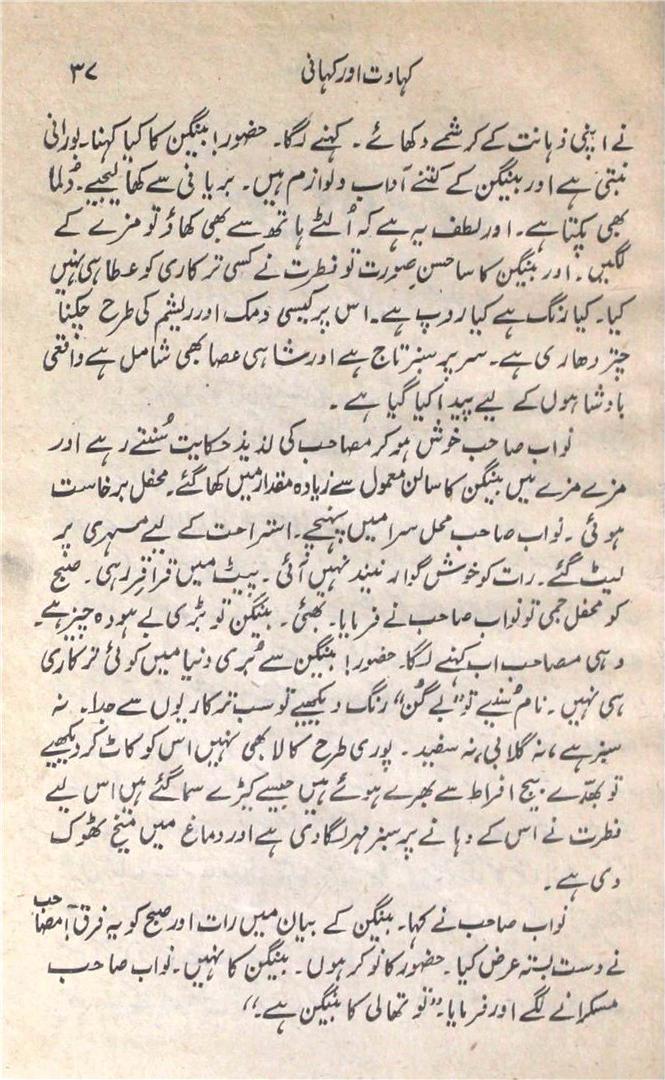 کہاوت اور کہانی ۳۷
نے اپنی ذہانت کے کرشمے دکھائے۔ کہنے لگا۔ حضور! بینگن کا کیا کہنا۔ بورانی
نبتی ہے اور بینگن کے کتنے آداب و لوازم ہیں۔ بریانی سے کھا لیجیے۔ دُلما
بھی پکتا ہے۔ اور لطف یہ ہے کہ اُلٹے ہاتھ سے بھی کھاؤ تو مزے کے
لگیں۔ اور بینگن کا سا حسنِ صورت تو فطرت نے کسی ترکاری کو عطا ہی نہیں
کیا۔ کیا رنگ ہے کیا روپ ہے۔ اس پر کیسی دمک اور ریشم کی طرح چکنا
چتر دھاری ہے۔ سر پر سبز تاج ہے اور شاہی عصا بھی شامل ہے واقعی
بادشاہوں کے لیے پیدا کیا گیا ہے۔
نواب صاحب خوش ہو کر مصاحب کی لذیذ حکایت سُنتے رہے اور
مزے مزے میں بینگن کا سالن معمول سے زیادہ مقدار میں کھا گئے۔ محفل برخاست
ہوئی۔ نواب صاحب محل سرا میں پہنچے۔ استراحت کے لیے مسہری پر
لیٹ گئے۔ رات کو خوش گوار نیند نہیں آئی۔ پیٹ میں قراقر رہی۔ صبح
کو محفل جمی تو نواب صاحب نے فرمایا۔ بھئی۔ بینگن تو بڑی بے ہودہ چیز ہے۔
وہی مصاحب اب کہنے لگا۔ حضور! بینگن سے بُری دنیا میں کوئی ترکاری
ہی نہیں۔ نام سُنیے تو ”بے گُن“ رنگ دیکھیے تو سب ترکاریوں سے جدا۔ نہ
سبز ہے، نہ گلابی، نہ سفید۔ پوری طرح کالا بھی نہیں اس کو کاٹ کر دیکھیے
تو بھدّے بیج افراط سے بھرے ہوئے ہیں جیسے کیڑے سما گئے ہیں اس لیے
فطرت نے اس کے دہانے پر سبز مہر لگا دی ہے اور دماغ میں میخ ٹھوک
دی ہے۔
نواب صاحب نے کہا۔ بینگن کے بیان میں رات اور صبح کو یہ فرق! مصاحب
نے دست بستہ عرض کیا۔ حضور کا نوکر ہوں۔ بینگن کا نہیں۔ نواب صاحب
مسکرانے لگے اور فرمایا۔ ”تو تھالی کا بینگن ہے۔“